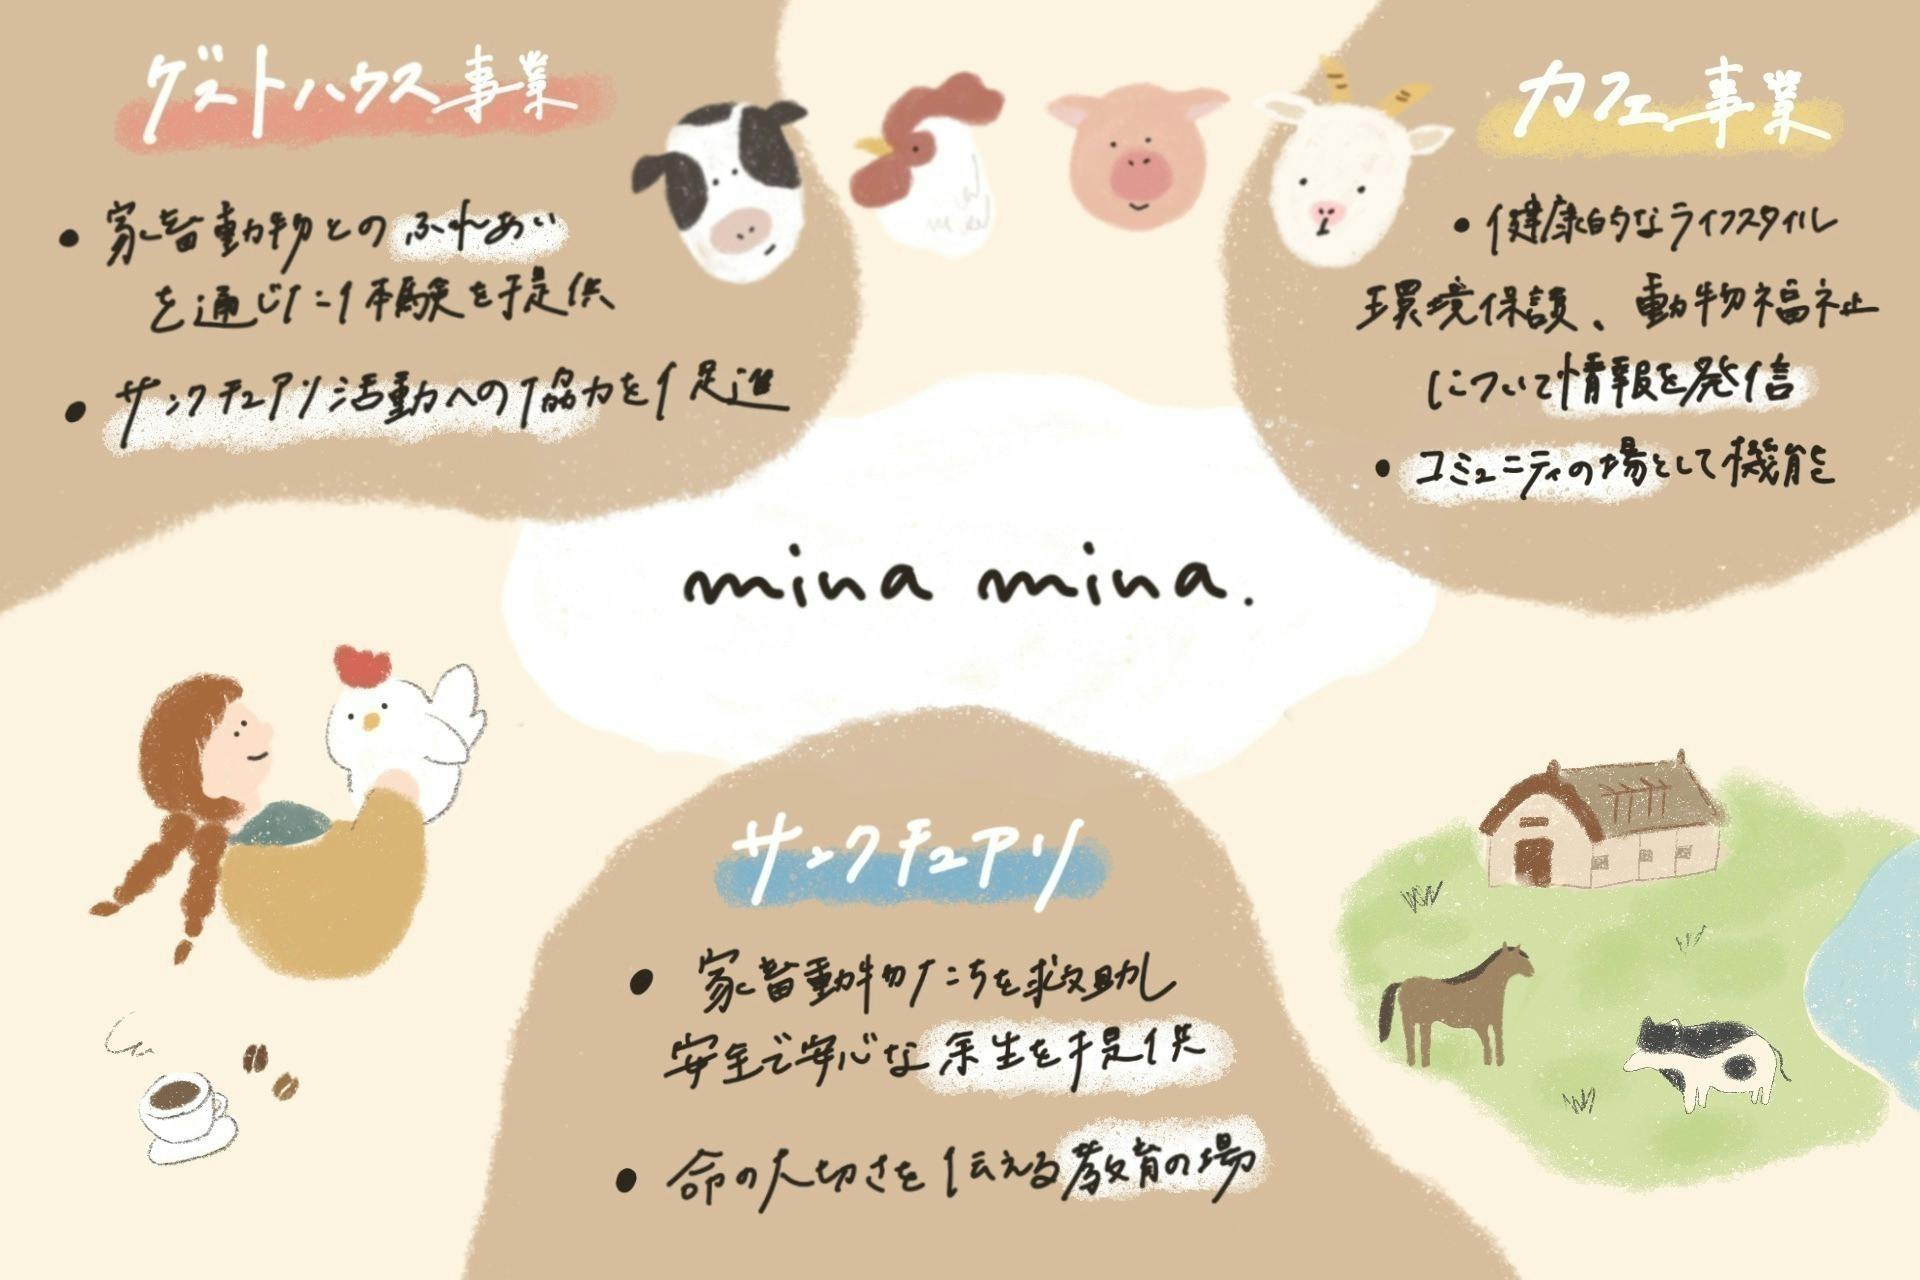 ゲストハウス事業
• 家畜動物とのふれあい
を通じた体験を提供
• サンクチュアリ活動への協力を促進
カフェ事業
• 健康的なライフスタイル
環境保護、動物福祉
について情報を発信
• コミュニティの場として機能
mina mina.
サンクチュアリ
• 家畜動物たちを救助し
安全で安心な余生を提供
• 命の大切さを伝える教育の場